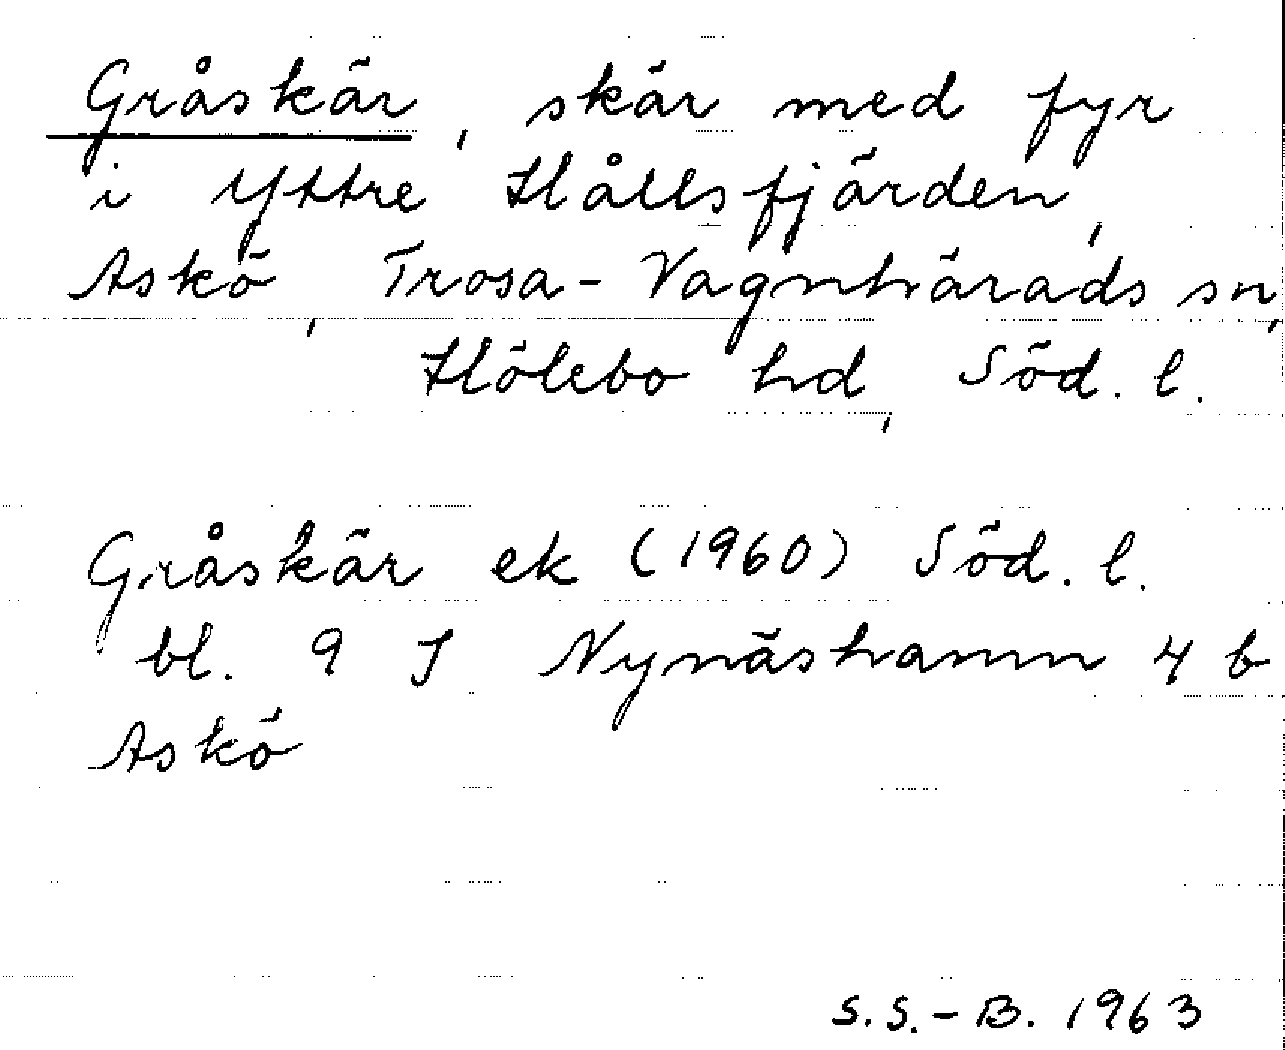 Gråskär, skär med fyr
i Yttre Hållsfjärden,
Askö, Trosa-Vagnhärads sn,
Hölebo hd, Söd. l.
Gråskär ek (1960) Söd. l.
bl. 9 I Nynäshamn 4 b
Askö
S.S.-B. 1963